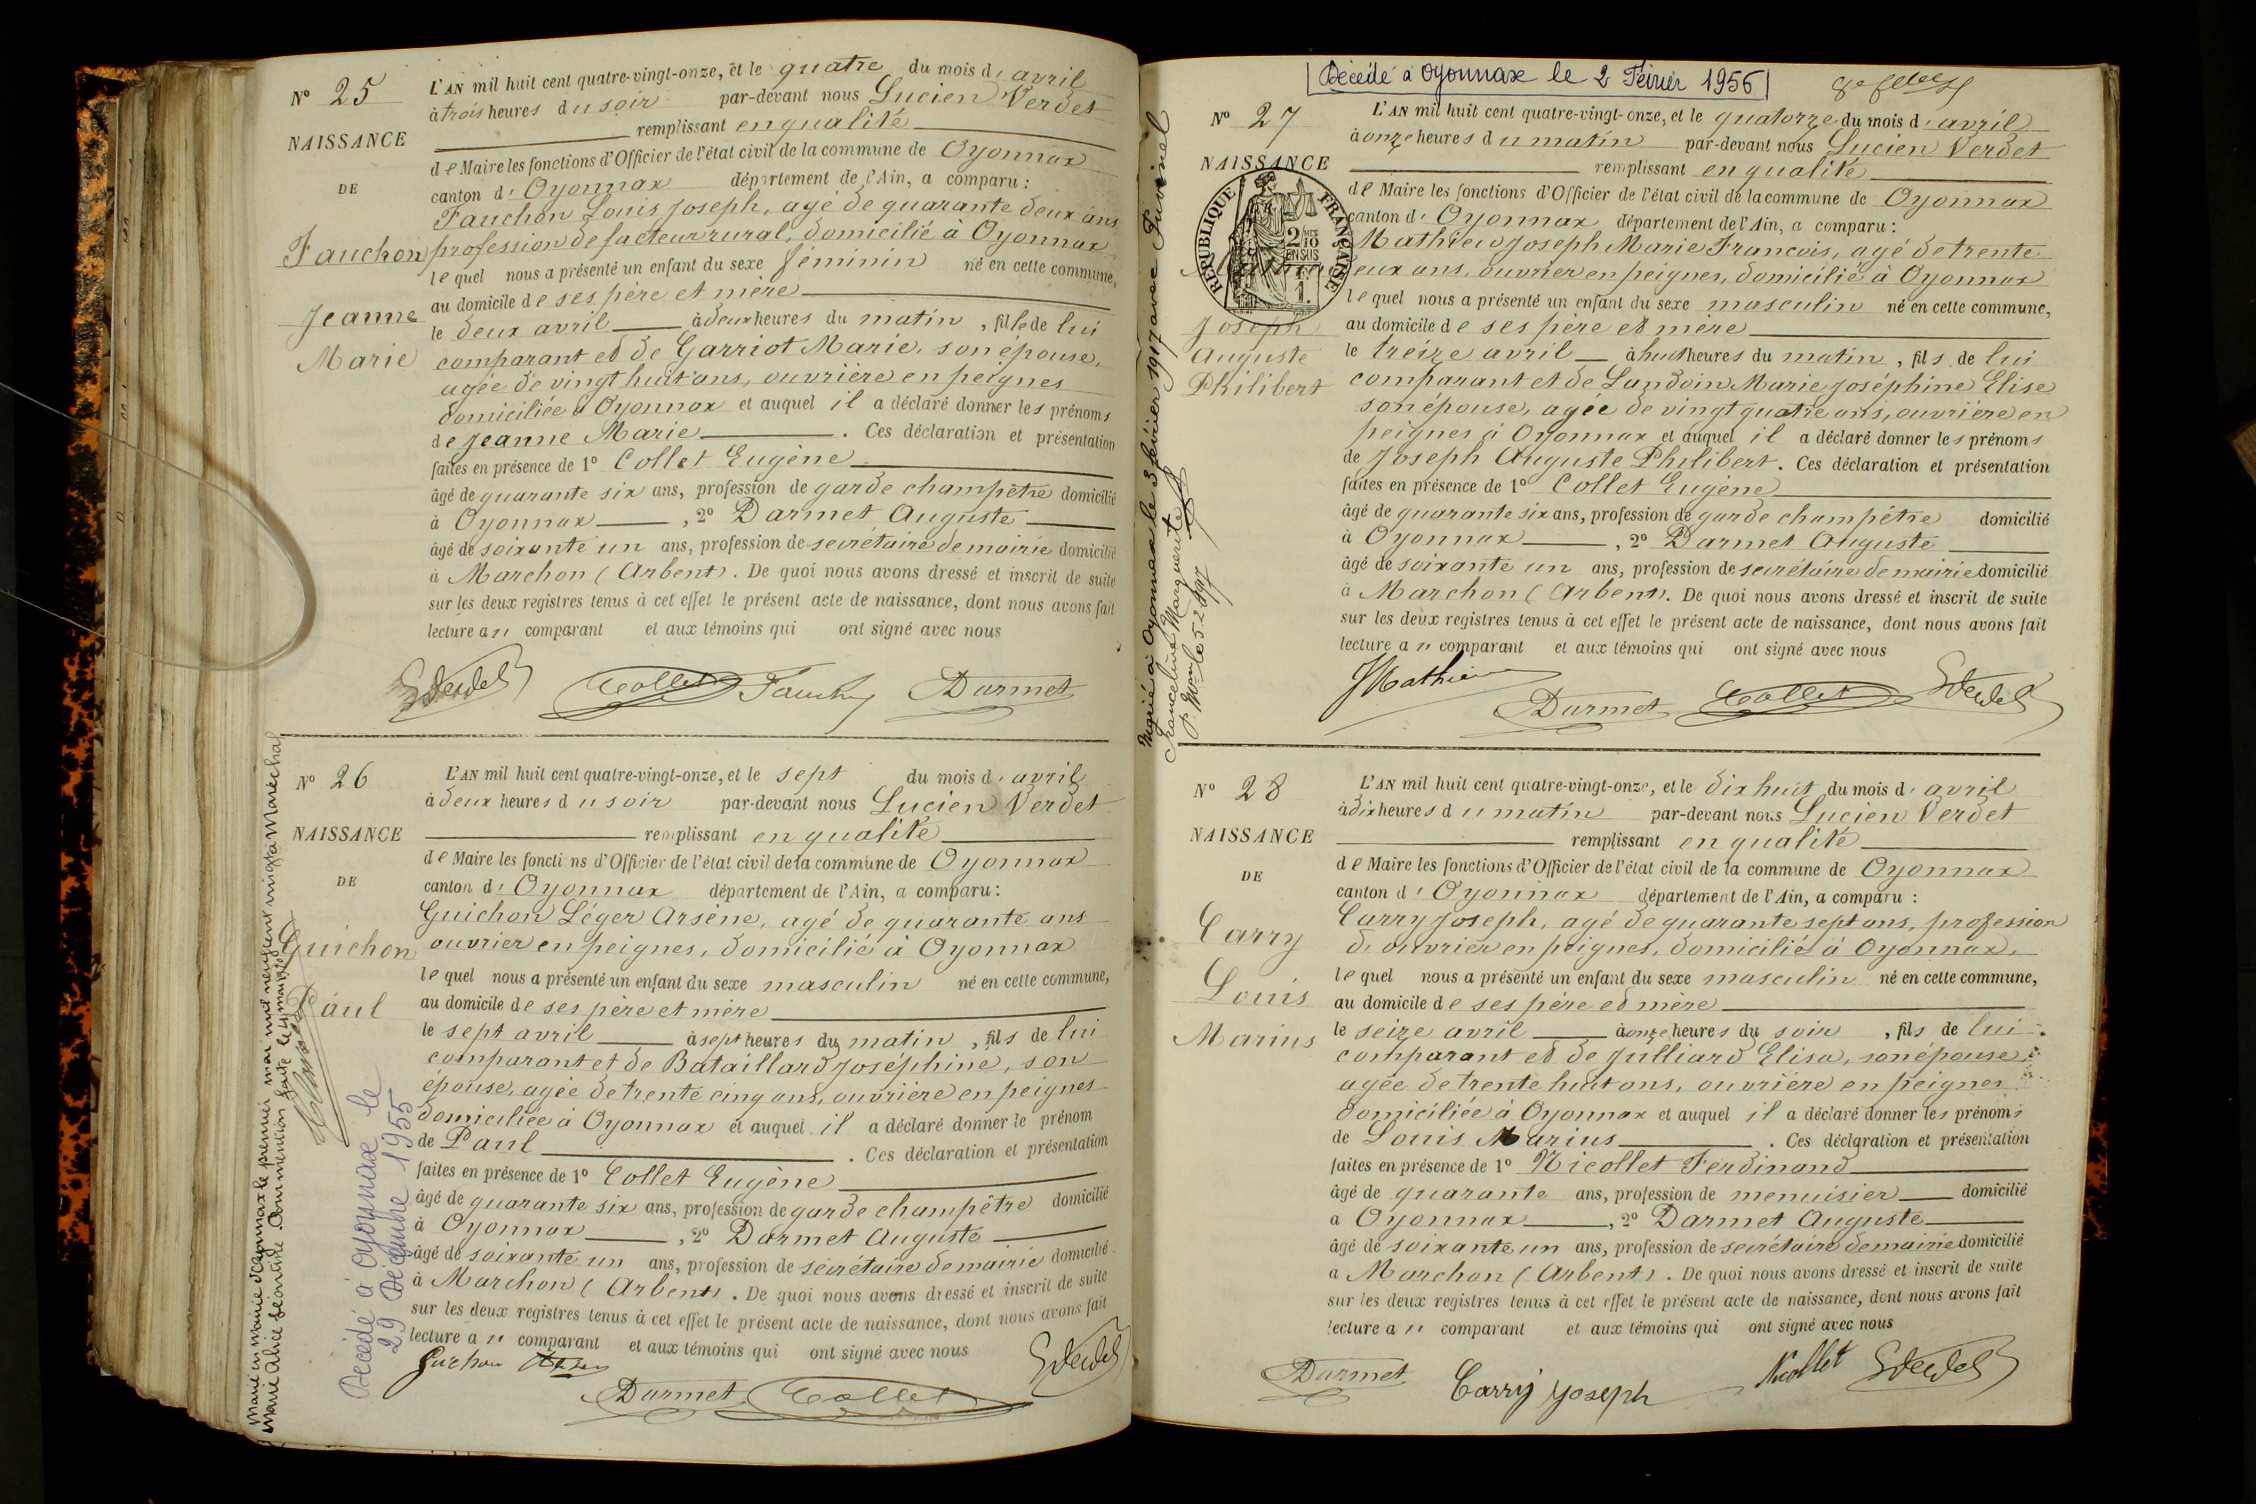 N° 25
NAISSANCE
DE
Fauchon
Jeanne
Marie
L'AN mil huit cent quatre-vingt-onze, et le quatre du mois d'avril
à trois heures du soir par-devant nous Lucien Verdet
remplissant en qualité
de Maire les fonctions d'Officier de l'état civil de la commune de Oyonnax
canton d'Oyonnax département de l'Ain, a comparu :
Fauchon Louis Joseph, agé de quarante deux ans
profession de facteur rural, domicilié à Oyonnax
lequel nous a présenté un enfant du sexe féminin né en cette commune,
au domicile de ses père et mère
le deux avril à deux heures du matin, fille de lui
comparant et de Garriot Marie, son épouse,
agée de vingt huit ans, ouvrière en peignes
domiciliée à Oyonnax et auquel il a déclaré donner les prénoms
de Jeanne Marie . Ces déclaration et présentation
faites en présence de 1° Collet Eugène
âgé de quarante six ans, profession de garde champêtre domicilié
à Oyonnax , 2° Darmet Auguste
âgé de soixante un ans, profession de secrétaire de mairie domicilié
à Marchon (Arbent). De quoi nous avons dressé et inscrit de suite
sur les deux registres tenus à cet effet le présent acte de naissance, dont nous avons fait
lecture au comparant et aux témoins qui ont signé avec nous
Verdet Collet Fauchon Darmet
N° 26
NAISSANCE
DE
Guichon
Paul
Marié en mairie d'Oyonnax le premier mai mil neuf cent vingt à Maréchal
Marie Alice Léonine
Décédé à Oyonnax le
29 Décembre 1955
L'AN mil huit cent quatre-vingt-onze, et le sept du mois d'avril
à deux heures du soir par-devant nous Lucien Verdet
remplissant en qualité
de Maire les fonctions d'Officier de l'état civil de la commune de Oyonnax
canton d'Oyonnax département de l'Ain, a comparu :
Guichon Léger Arsène, agé de quarante ans
ouvrier en peignes, domicilié à Oyonnax
lequel nous a présenté un enfant du sexe masculin né en cette commune,
au domicile de ses père et mère
le sept avril à sept heures du matin, fils de lui
comparant et de Bataillard Joséphine, son
épouse, agée de trente cinq ans, ouvrière en peignes
domiciliée à Oyonnax et auquel il a déclaré donner le prénom
de Paul . Ces déclaration et présentation
faites en présence de 1° Collet Eugène
âgé de quarante six ans, profession de garde champêtre domicilié
à Oyonnax , 2° Darmet Auguste
âgé de soixante un ans, profession de secrétaire de mairie domicilié
à Marchon (Arbent). De quoi nous avons dressé et inscrit de suite
sur les deux registres tenus à cet effet le présent acte de naissance, dont nous avons fait
lecture au comparant et aux témoins qui ont signé avec nous
Guichon Verdet
Darmet Collet
Décédé à Oyonnax le 2 Février 1956
N° 27
NAISSANCE
RÉPUBLIQUE FRANÇAISE
2/10 EN SUS
Joseph
Auguste
Philibert
Marié à Oyonnax le 3 février 1917 avec
Franceline Marguerite
le 5 2 1917
L'AN mil huit cent quatre-vingt-onze, et le quatorze du mois d'avril
à onze heures du matin par-devant nous Lucien Verdet
remplissant en qualité
de Maire les fonctions d'Officier de l'état civil de la commune de Oyonnax
canton d'Oyonnax département de l'Ain, a comparu :
Mathieu Joseph Marie Francois, agé de trente
eux ans, ouvrier en peignes, domicilié à Oyonnax
lequel nous a présenté un enfant du sexe masculin né en cette commune,
au domicile de ses père et mère
le treize avril à huit heures du matin, fils de lui
comparant et de Landoin Marie Joséphine Elise
son épouse, agée de vingt quatre ans, ouvrière en
peignes à Oyonnax et auquel il a déclaré donner les prénoms
de Joseph Auguste Philibert. Ces déclaration et présentation
faites en présence de 1° Collet Eugène
âgé de quarante six ans, profession de garde champêtre domicilié
à Oyonnax , 2° Darmet Auguste
âgé de soixante un ans, profession de secrétaire de mairie domicilié
à Marchon (Arbent). De quoi nous avons dressé et inscrit de suite
sur les deux registres tenus à cet effet le présent acte de naissance, dont nous avons fait
lecture au comparant et aux témoins qui ont signé avec nous
JMathieu
Darmet Collet Verdet
N° 28
NAISSANCE
DE
Carry
Louis
Marius
L'AN mil huit cent quatre-vingt-onze, et le dix huit du mois d'avril
à dix heures du matin par-devant nous Lucien Verdet
remplissant en qualité
de Maire les fonctions d'Officier de l'état civil de la commune de Oyonnax
canton d'Oyonnax département de l'Ain, a comparu :
Carry Joseph, agé de quarante sept ans, profession
d'ouvrier en peignes, domicilié à Oyonnax,
lequel nous a présenté un enfant du sexe masculin né en cette commune,
au domicile de ses père et mère
le seize avril à onze heures du soir, fils de lui
comparant et de Julliard Elisa, son épouse
agée de trente huit ans, ouvrière en peignes
domiciliée à Oyonnax et auquel il a déclaré donner les prénoms
de Louis Marius . Ces déclaration et présentation
faites en présence de 1° Nicollet Ferdinand
âgé de quarante ans, profession de menuisier domicilié
à Oyonnax , 2° Darmet Auguste
âgé de soixante un ans, profession de secrétaire de mairie domicilié
à Marchon (Arbent). De quoi nous avons dressé et inscrit de suite
sur les deux registres tenus à cet effet le présent acte de naissance, dont nous avons fait
lecture au comparant et aux témoins qui ont signé avec nous
Darmet Carry Joseph Nicollet Verdet